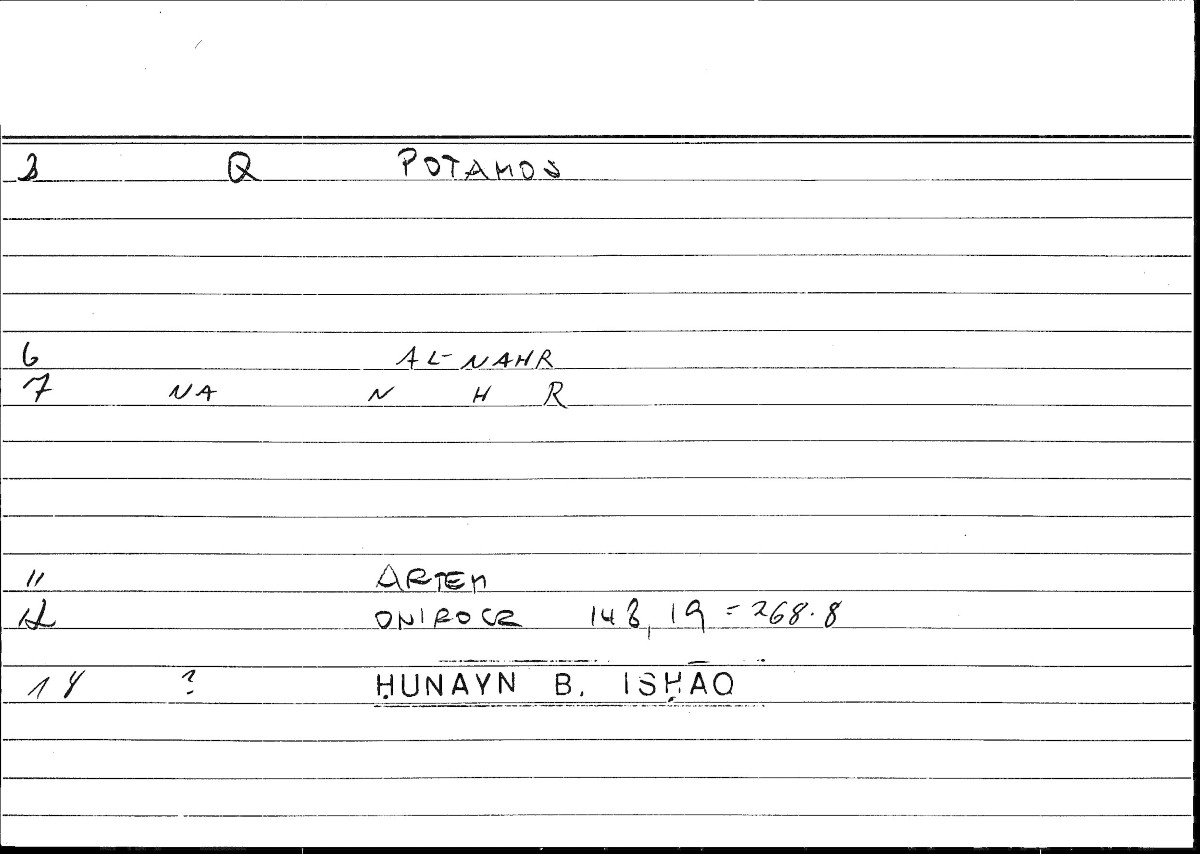 3 Q POTAMOS
6 AL-NAHR
7 NA N H R
11 ARTEM
12 ONIROCR 148, 19 = 268.8
14 ? ḤUNAYN B. ISḤĀQ